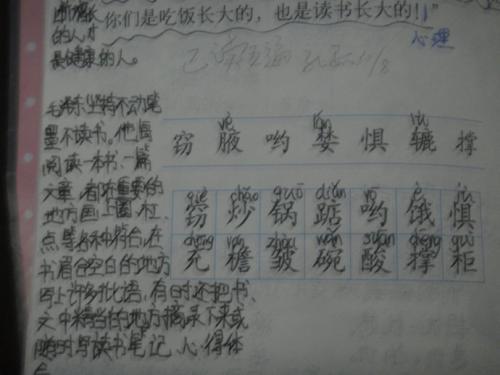 的人才
是健康的人。
你们是吃饭长大的，也是读书长大的！”
心理
毛泽东坚持不动笔
墨不读书。他每
阅读一本书，一篇
文章，都在重要的
地方画上圈、杠、
点等各种符号，在
书眉和空白的地方
写上许多批语。有时还把书、
文中精当的地方摘录下来或
随时写读书笔记、心得体
会
yè lǒu zhé
窃 腋 哟 篓 惧 辙 撑
qiè chǎo guō diǎn yō è jù
窃 炒 锅 踮 哟 饿 惧
chōng yán zhòu wǎn suān chēng guì
充 檐 皱 碗 酸 撑 柜